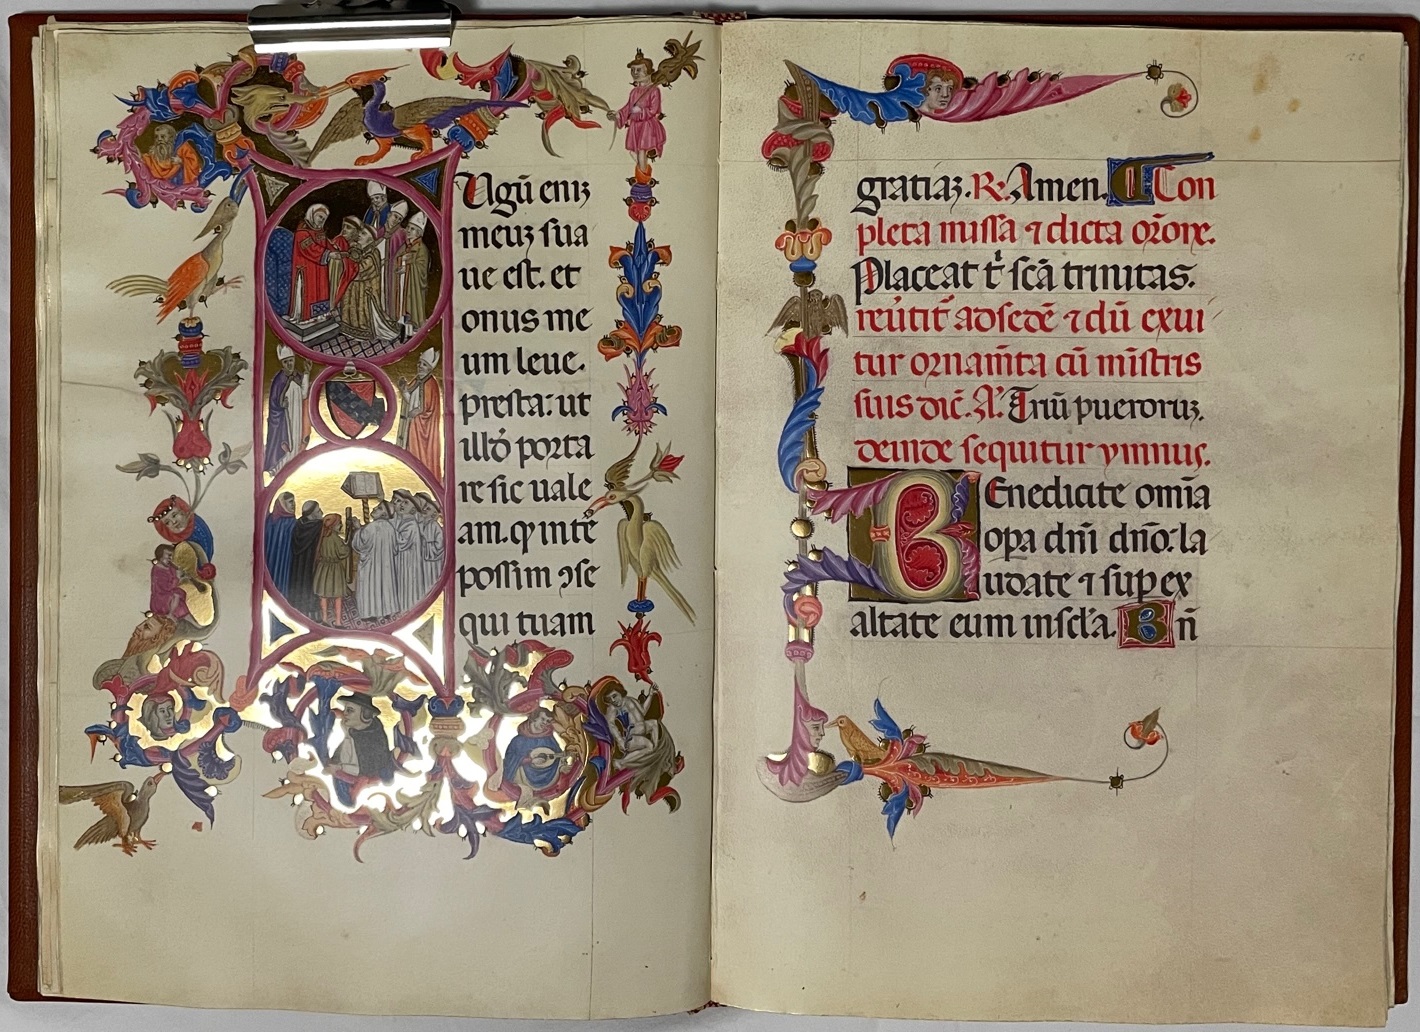 Ugū eniʒ
meuʒ sua
ue est. et
onus me
um leue.
presta: ut
illō porta
re sic uale
am. ꝙ inte
possim ↄse
qui tuam
gratiaʒ. R⁊. Amen. Con
pleta missa ⁊ dicta orōne.
Placeat t̄ scā trinitas.
reūtit̄ adsedē ⁊ dū exui
tur ornam̄ta cū mīstris
suis dic̄. A᷎. Triū pueroruʒ.
deinde sequitur ymnus.
Benedicite om̄ia
opa dn̄i dn̄o: la
udate ⁊ suꝑ ex
altate eum in scl'a. Bn̄